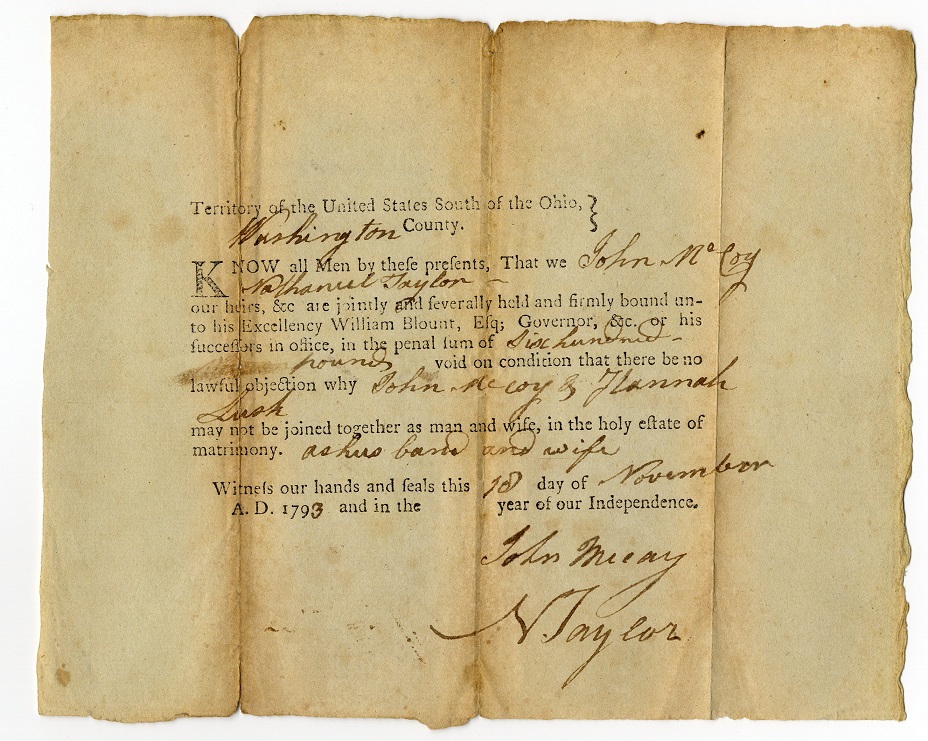 Territory of the United States South of the Ohio, }
Washington County.
KNOW all Men by these preſents, That we John McCoy
Nathaniel Taylor
our heirs, &c are jointly and ſeverally held and firmly bound un-
to his Excellency William Blount, Eſq; Governor, &c. or his
ſucceſſors in office, in the penal ſum of Six hundred
pounds void on condition that there be no
lawful objection why John McCoy & Hannah
Lusk
may not be joined together as man and wife, in the holy eſtate of
matrimony. as hus band and wife
Witneſs our hands and ſeals this 18 day of November
A. D. 1793 and in the year of our Independence.
John Mccay
N Taylor